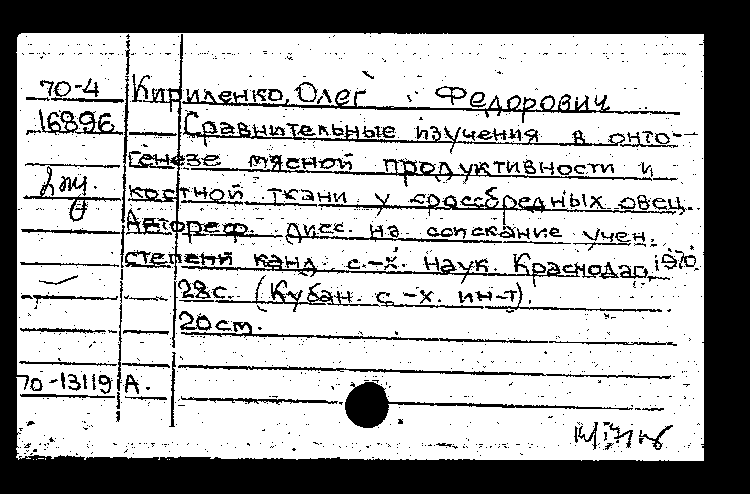 70-4 Кириленко, Олег Федорович
16896 Сравнительные изучения в онто-
генезе мясной продуктивности и
костной ткани у кроссбредных овец.
Автореф. дисс. на соискание учен.
степени канд. с.-х. наук. Краснодар, 1970.
28с. (Кубан. с.-х. ин-т).
20см.
70-13119 А.